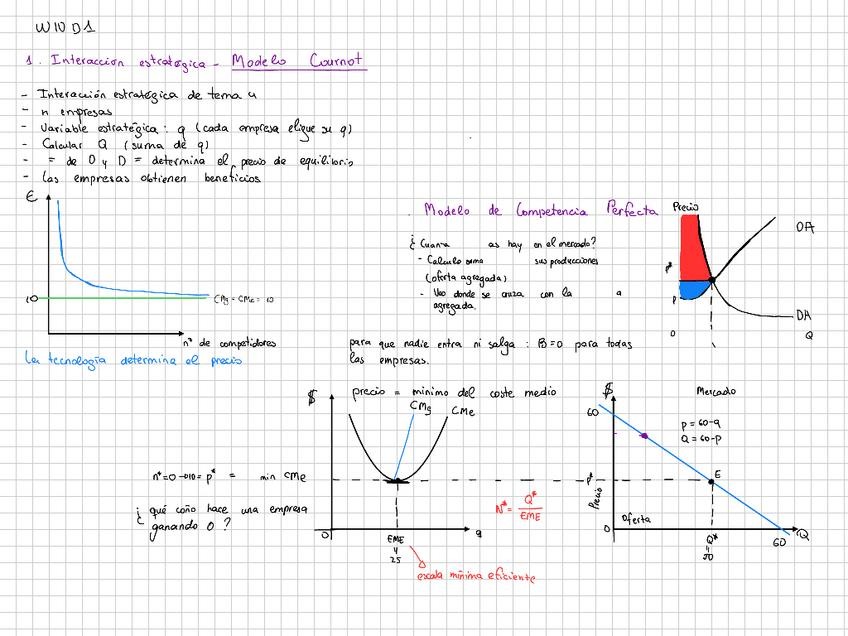 W10 D1
1. Interacción estratégica - Modelo Cournot
- Interacción estratégica de tema 4
- n empresas
- Variable estratégica: q (cada empresa elige su q)
- Calcular Q (suma de q)
- = de O y D = determina el precio de equilibrio
- Las empresas obtienen beneficios
€
10
CMg = CMe = 10
nº de competidores
La tecnología determina el precio
Modelo de Competencia Perfecta
as hay en el mercado?
- Calculo suma sus producciones
(oferta agregada)
- Veo donde se cruza con la a
agregada.
Precio
OA
p*
p
DA
0
Q
para que nadie entra ni salga : B=0 para todas
las empresas.
precio = mínimo del coste medio
$
CMg
CMe
n*=0 →10= p* = min CMe
¿ qué coño hace una empresa
ganando 0 ?
0
EME
25
q
escala mínima eficiente
N* = Q* / EME
$
Mercado
60
p = 60-q
Q = 60-p
p*
E
Precio
Oferta
0
Q*
50
60
Q